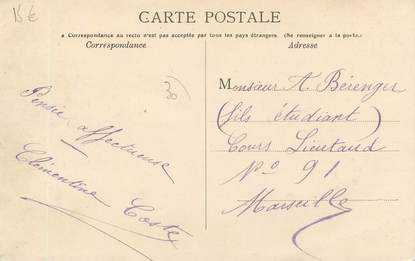 15 €
CARTE POSTALE
La Correspondance au recto n'est pas acceptée par tous les pays étrangers. (Se renseigner à la poste.)
Correspondance
Adresse
30
Pensée affectueuse
Clémentine Coste
Monsieur A. Bérenger
(fils étudiant)
Cours Lieutaud
No 91
Marseille